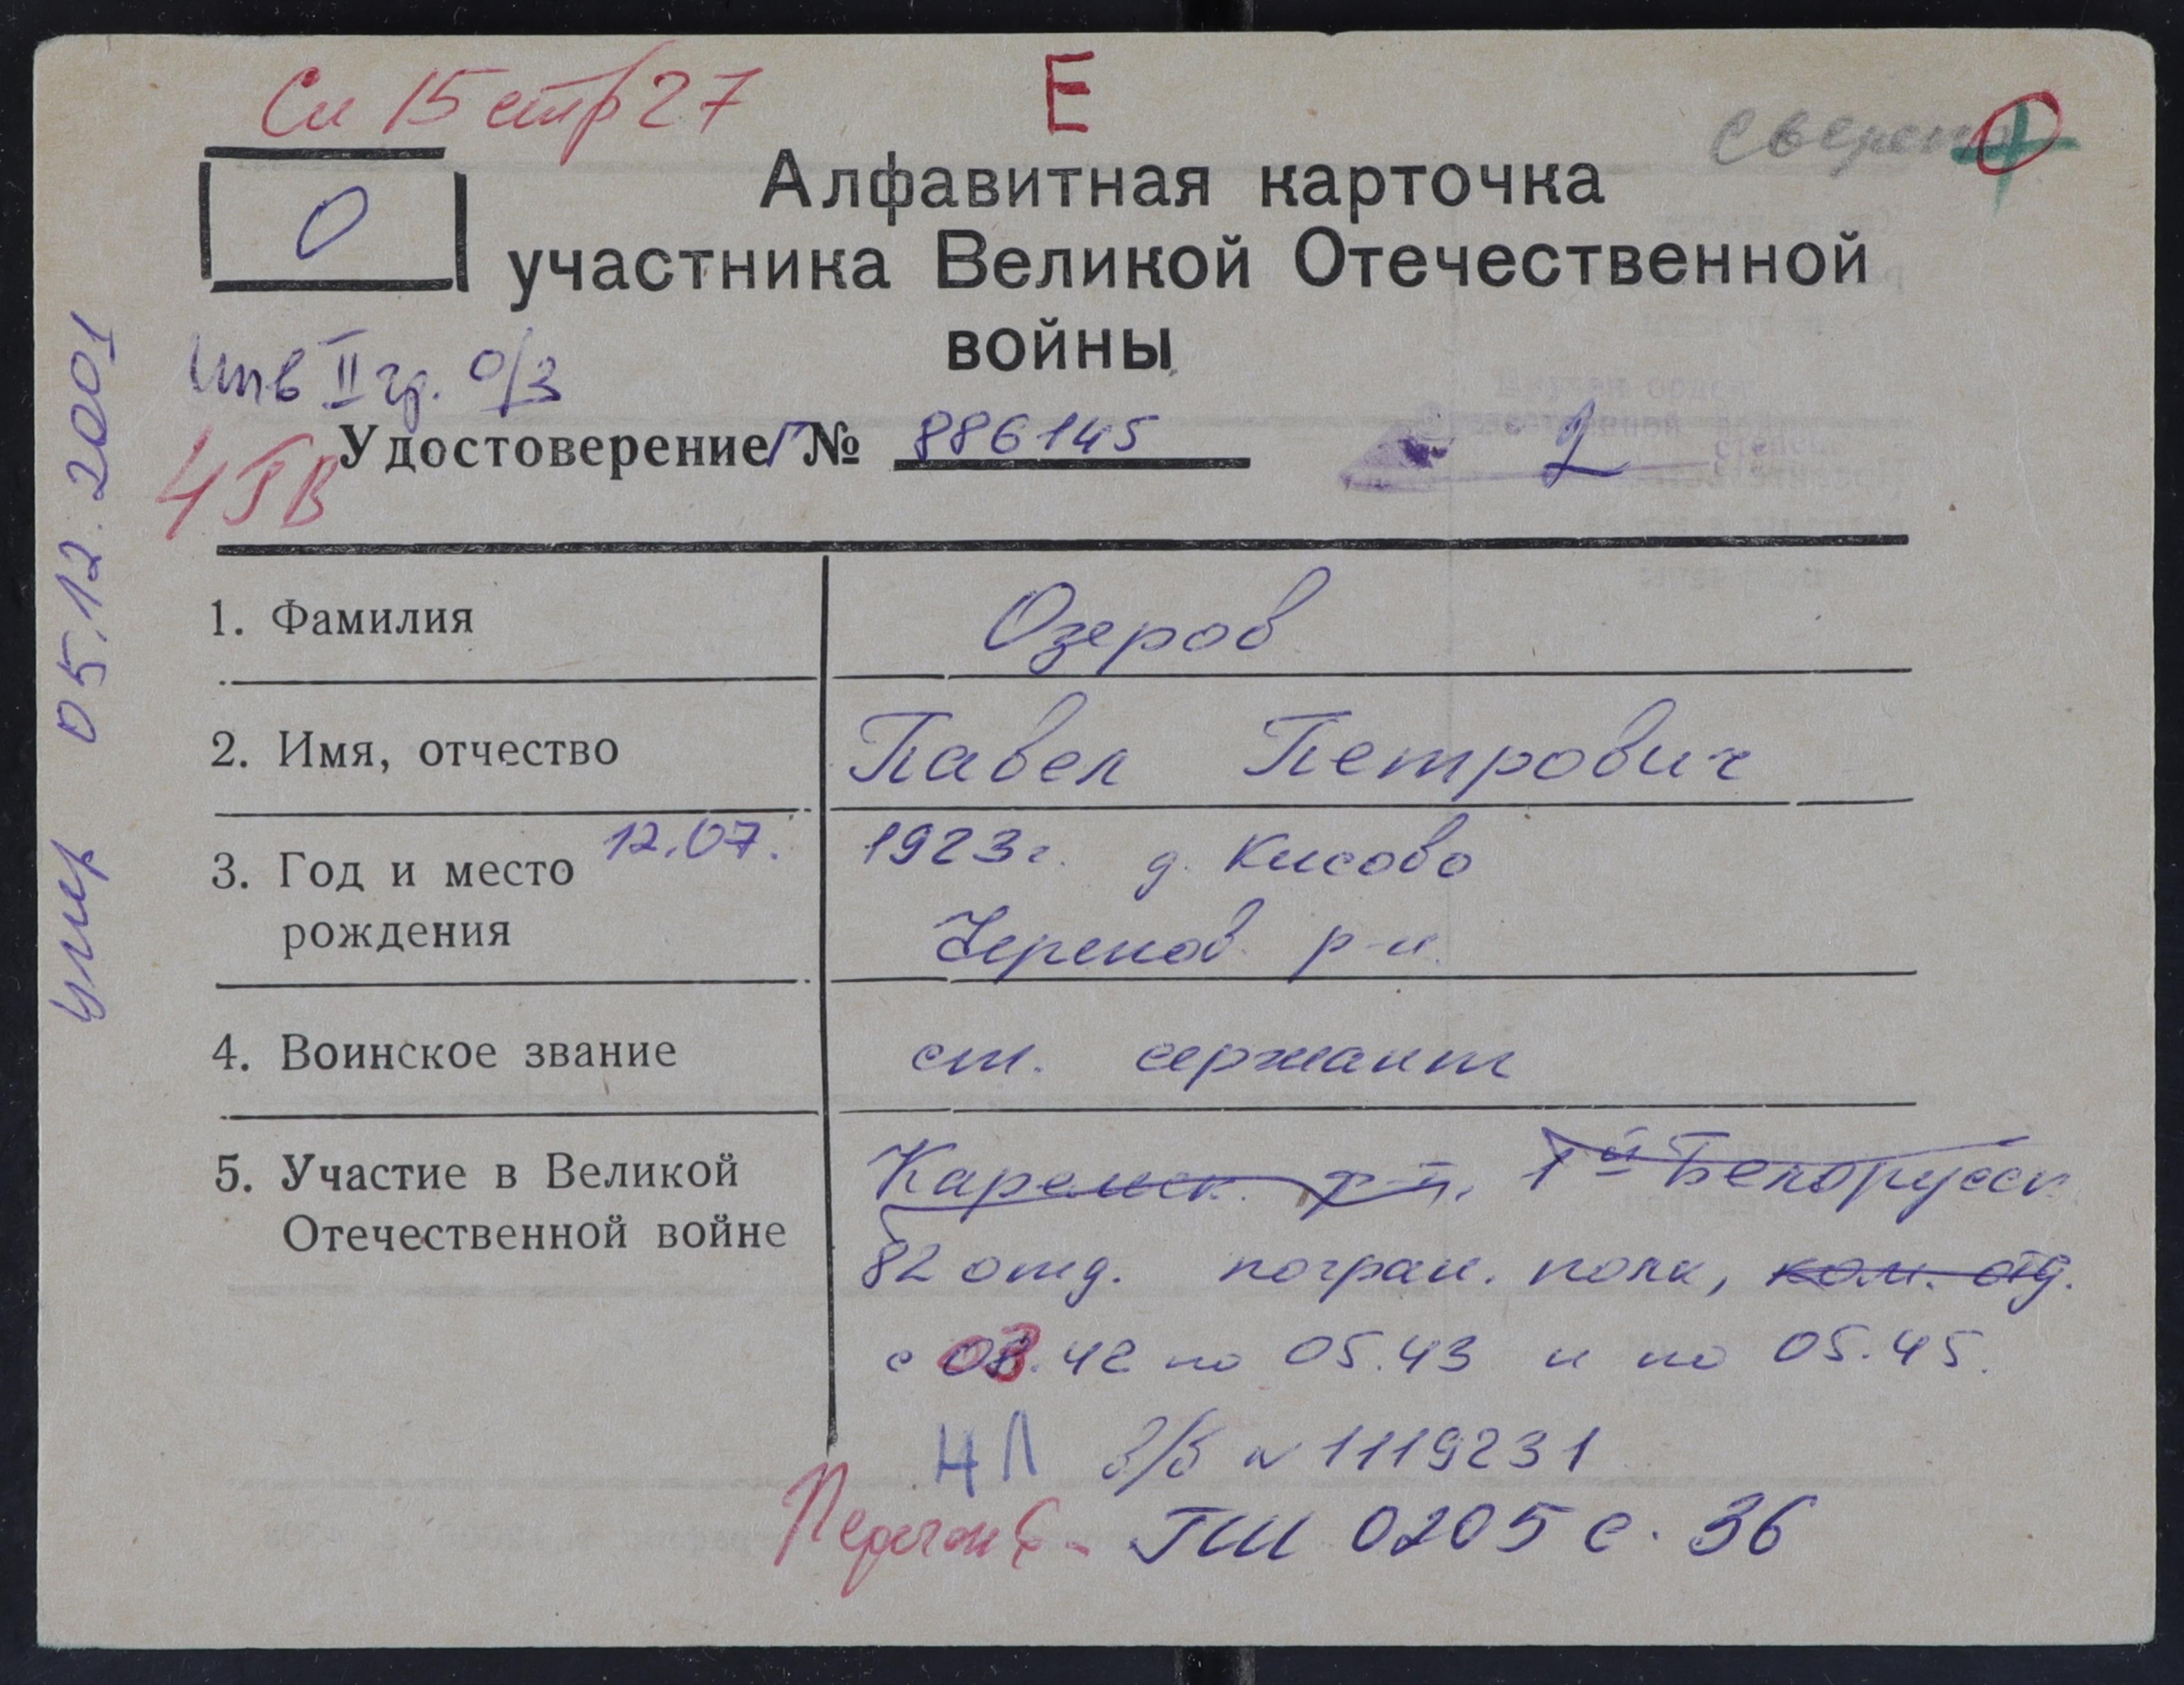 Сп 15 стр 27
Е
сверено
О
О
Алфавитная карточка
участника Великой Отечественной
войны
Инв II гр. О/З
Удостоверение Г № 886145
2
4 ГВ
умер 05.12.2001
1. Фамилия Озеров
2. Имя, отчество Павел Петрович
3. Год и место рождения 12.07. 1923г. д. Кисово
Черепов. р-н.
4. Воинское звание ст. сержант
5. Участие в Великой Отечественной войне Карельск. ф-т, 1й Белорусск
82 отд. погран. полк, ком. отд.
с 03.42 по 05.43 и по 05.45.
НЛ в/б № 1119231
ГШ 0205 с. 36